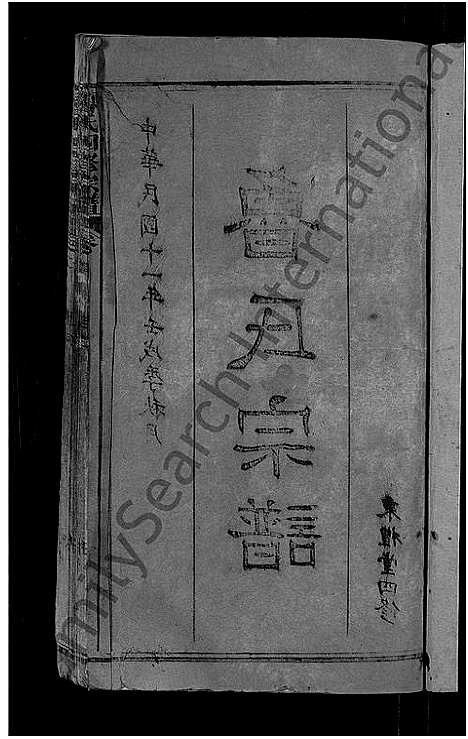 中華民國十一年壬戌季秋月
氏宗譜
堂四修
milySearch International